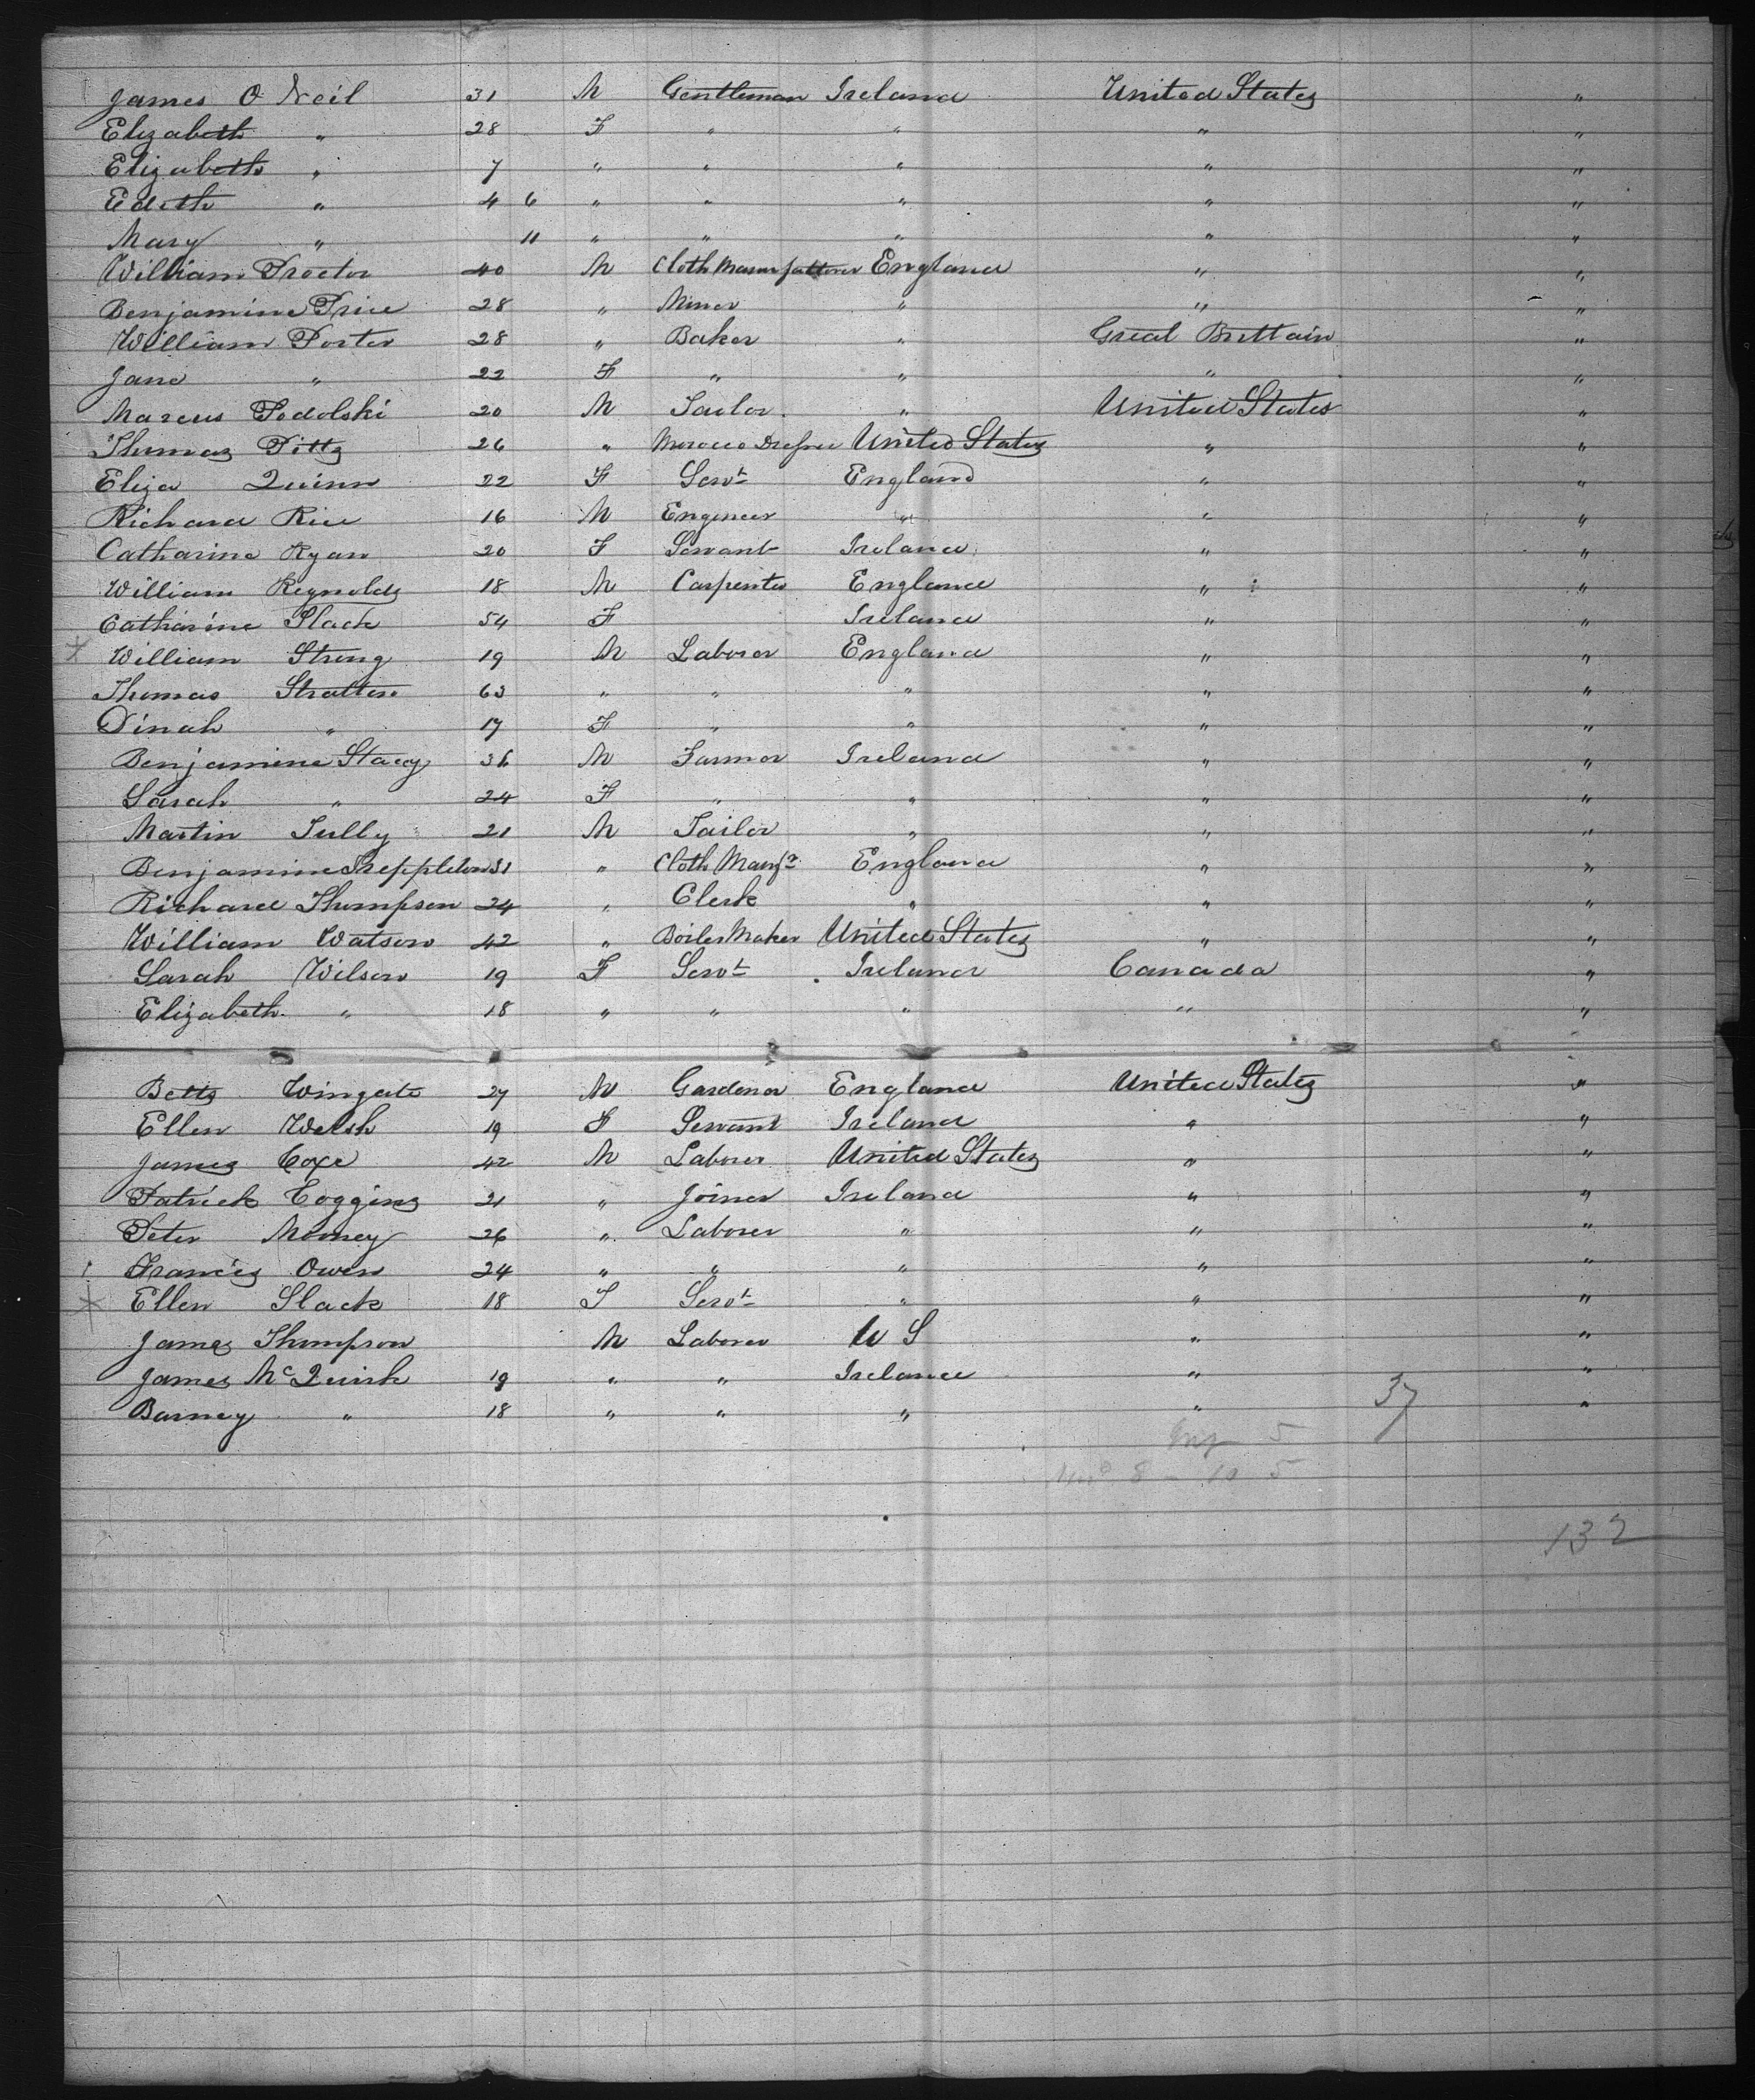 James O Neil 31 M Gentleman Ireland United States "
Elizabeth " 28 F " " " "
Elizabeth " 7 " " " " "
Edith " 4 6 " " " " "
Mary " 11 " " " " "
William Proctor 40 M Cloth Manufatturer England " "
Benjamine Price 28 " Miner " " "
William Porter 28 " Baker " Great Brittain "
Jane " 22 F " " " "
Marcus Podolski 20 M Tailor " United States "
Thomas Pitts 26 " Morocco Dresser United States " "
Eliza Quinn 22 F Servt England " "
Richard Rice 16 M Engineer " " "
Catharine Ryan 20 F Servant Ireland " "
William Reynolds 18 M Carpenter England " "
Catharine Slack 54 F Ireland " "
William String 19 M Laborer England " "
Thomas Stratton 63 " " " " "
Dinah " 17 F " " " "
Benjamine Stacy 36 M Farmer Ireland " "
Sarah " 24 F " " " "
Martin Tully 21 M Tailor " " "
Benjamine Treppleton 31 " Cloth Manfr England " "
Richard Thompson 24 " Clerk " " "
William Watson 42 " Boiler Maker United States " "
Sarah Wilson 19 F Servt Ireland Canada "
Elizabeth " 18 " " " " "
Betts Wingate 27 M Gardener England United States "
Ellen Welsh 19 F Servant Ireland " "
James Coxe 42 M Laborer United States " "
Patrick Coggins 21 " Joiner Ireland " "
Peter Mooney 26 " Laborer " " "
Francis Owen 24 " " " " "
Ellen Slack 18 F Servt " " "
James Thompson M Laborer U S " "
James McQuirk 19 " " Ireland " "
Barney " 18 " " " " "
37
5
8 - 10 5
132